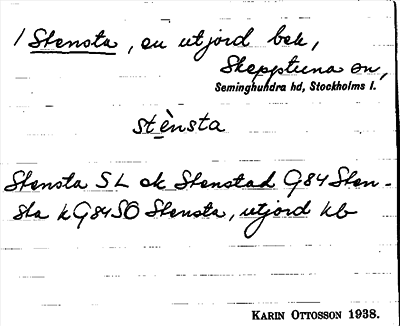 1 Stensta, en utjord bek,
Skepptuna sn,
Seminghundra hd, Stockholms l.
stènsta
Stensta SL ek Stenstad G84 Sten-
sta k G84 SÖ Stensta, utjord kb
KARIN OTTOSSON 1938.